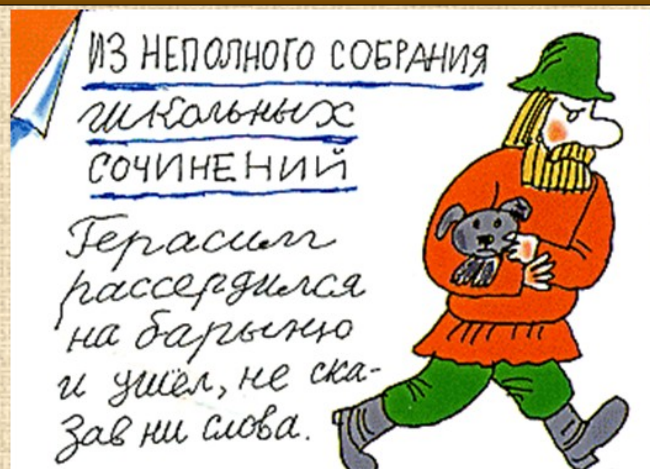 ИЗ НЕПОЛНОГО СОБРАНИЯ
школьных
СОЧИНЕНИЙ
Герасим
рассердился
на барыню
и ушёл, не ска-
зав ни слова.